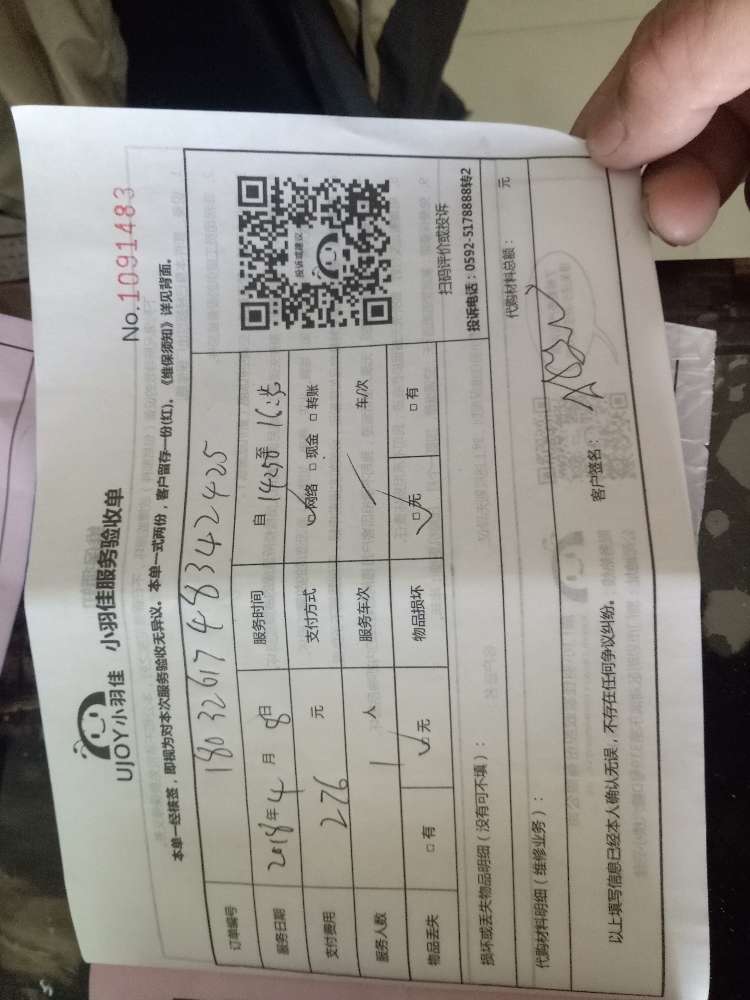 UJOY小羽佳 小羽佳服务验收单
No.1091483
本单一经核签，即视为对本次服务验收无异议。本单一式两份，客户留存一份(红)。《维保须知》详见背面。
订单编号 1803261748342425
服务日期 2018年4月8日 服务时间 自14:50至16:35
支付费用 276元 支付方式 ☑网络 □现金 □转账
服务人数 1人 服务车次 / 车/次
物品丢失 □有 ☑无 物品损坏 ☑无 □有
投诉或建议
扫码评价或投诉
投诉电话：0592-5178888转2
损坏或丢失物品明细（没有可不填）：
代购材料明细（维修业务）： 代购材料总额： 元
以上填写信息已经本人确认无误，不存在任何争议纠纷。 客户签名：